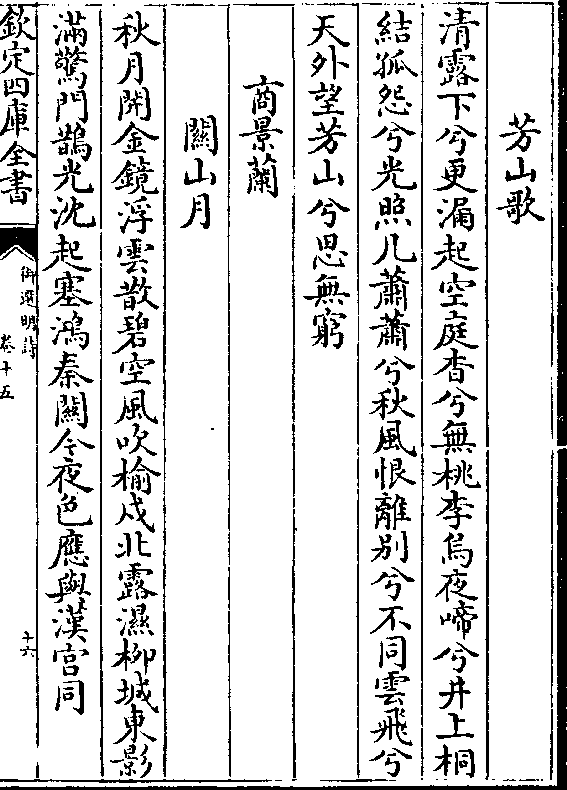 芳山歌
清露下兮更漏起空庭杳兮無桃李烏夜啼兮井上桐
結孤怨兮光照几蕭蕭兮秋風恨離别兮不同雲飛兮
天外望芳山兮思無窮
商景蘭
關山月
秋月開金鏡浮雲散碧空風吹榆戍北露濕柳城東影
滿驚門鵲光沈起塞鴻秦關今夜色應與漢宫同
欽定四庫全書
御選明詩
卷十五
十六